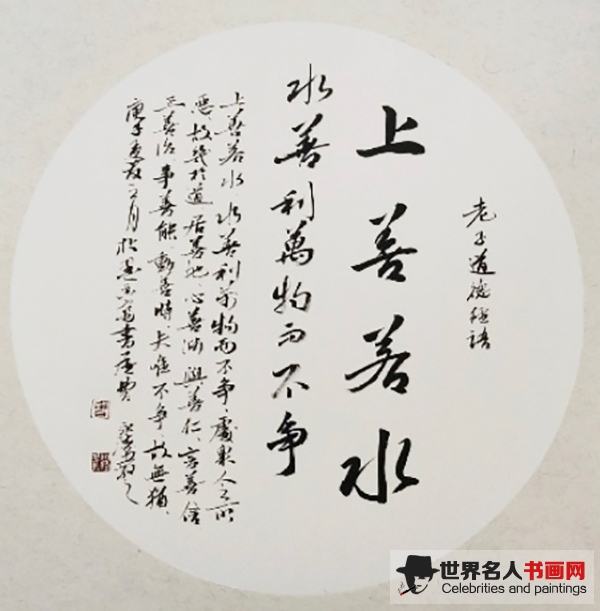 老子道德經語
上善若水
水善利萬物而不争
上善若水水善利萬物而不争、處衆人之所
惡、故幾於道、居善地、心善淵、與善仁、言善信
正善治、事善能、動善時、夫唯不争、故無猶、
庚子
月於
書
世界名人书画网
Celebrities and paintings